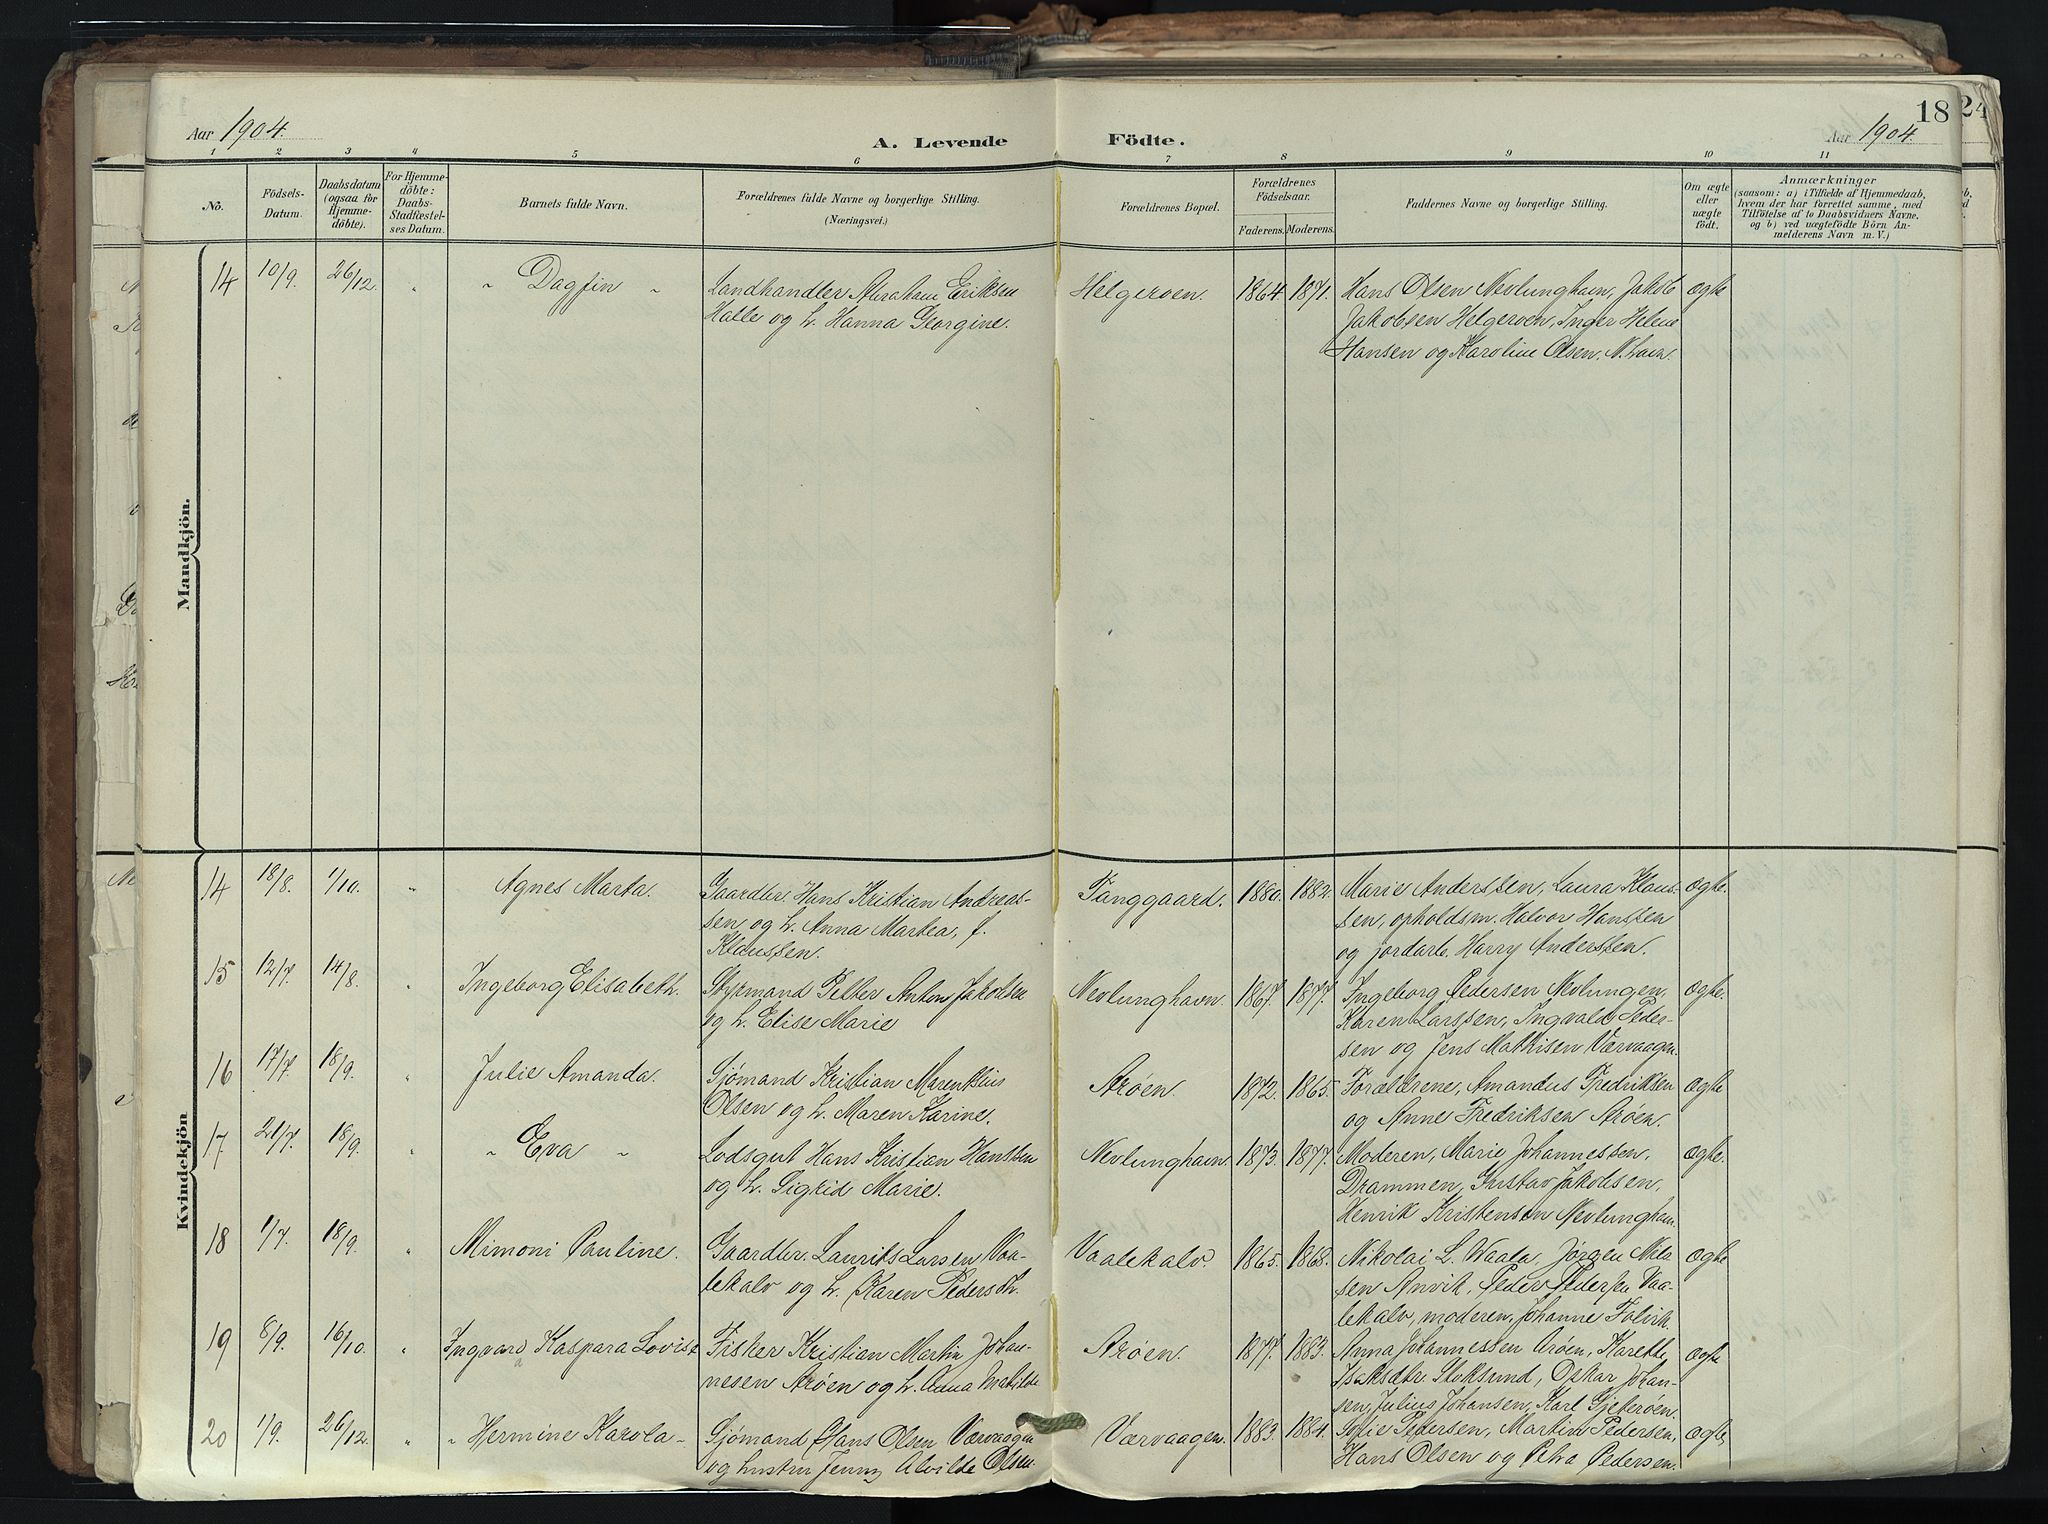 Aar 1904.
A. Levende
Födte.
18
24
Aar 1904.
1 2 3 4 5 6 7 8 9 10 11
No.
Födsels-
Datum.
Daabsdatum
(ogsaa for
Hjemme-
döbte).
For Hjemme-
döbte:
Daabs-
Stadfæstel-
ses Datum.
Barnets fulde Navn.
Forældrenes fulde Navne og borgerlige Stilling.
(Næringsvei.)
Forældrenes Bopæl.
Forældrenes
Födselsaar.
Faderens. Moderens.
Faddernes Navne og borgerlige Stilling.
Om ægte
eller
uægte
födt.
Anmærkninger
(saasom: a) i Tilfælde af Hjemmedaab,
hvem der har forrettet samme, med
Tilföielse af to Daabsvidners Navne,
og b) ved uægtefödte Börn An-
melderens Navn m. V.)
Mandkjön.
14 10/9. 26/12. " " Dagfin "
Landhandler Abraham Eriksen
Halle og h. Hanna Georgine.
Helgeroen. 1864. 1871.
Hans Olsen Nevlunghavn, Jakob
Jakobsen Helgeroen, Inger Helene
Hansen og Karoline Olsen. N.havn.
ægte
Kvindekjön
14 18/8. 1/10. " Agnes Marta.
Gaardbr. Hans Kristian Andreas-
sen og h. Anna Martea, f.
Klaussen.
Fanggaard. 1880. 1882.
Marie Anderssen, Laura Klaus-
sen, opholdsm. Halvor Hanssen
og jordarb. Harry Anderssen.
ægte.
15 12/7. 14/8. " Ingeborg Elisabeth.
Styrmand Petter Anton Jakobsen
og h. Elise Marie
Nevlunghavn. 1867. 1877.
Ingeborg Pedersen Nevlungen,
Karen Larssen, Ingvald Peder-
sen og Jens Mathisen Værvaagen.
ægte.
16 17/7. 18/9. " Julie Amanda.
Sjömand Kristian Marentius
Olsen og h. Maren Karine.
Aröen. 1872. 1865.
Forældrene, Amandus Fredriksen
og Anne Fredriksen Aröen.
ægte
17 21/7. 18/9. " " Eva "
Lodsgut Hans Kristian Hanssen
og h. Sigrid Marie.
Nevlunghavn. 1873. 1877.
Moderen, Marie Johannessen,
Drammen, Gustav Jakobsen,
Henrik Kristensen Nevlungham.
ægte.
18 1/7. 18/9. " Mimoni Pauline.
Gaardbr. Laurits Larsen Vaa-
lekalv og h. Karen Pedersdt.
Vaalekalv 1865. 1868.
Nikolai L. Waale, Jörgen Niel-
sen Anvik, Peder Pedersen Vaa-
lekalv, moderen, Johanne
ægte
19 8/9. 16/10. " Ingvara Kaspara Lovise
Fisker Kristian Martin Johan-
nesen Aröen og h. Anna Matilde
Aröen. 1877. 1883.
Anna Johannessen Aröen, Karette
Isaksdtr. Stoksund, Oskar Johan-
sen, Julius Johansen, Karl Gjeteröen.
ægte
20 1/9. 26/12. " " Hermine Karola "
Sjömand Hans Olsen Værvaagen
og hustru Jenny Alvilde Olsen
Værvaagen. 1883. 1884.
Sofie Pedersen, Martin Pedersen,
Hans Olsen og Petra Pedersen.
ægte